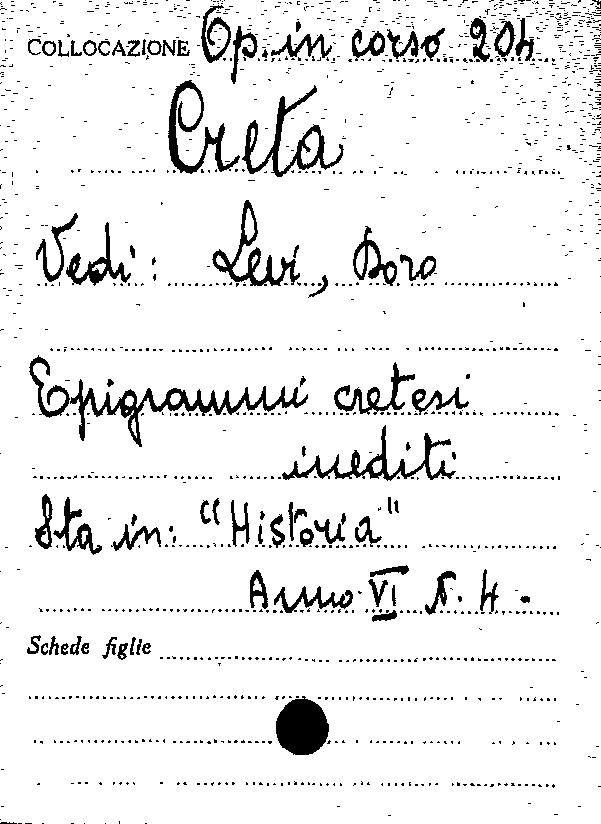 COLLOCAZIONE Op. in corso 204
Creta
Vedi: Levi, Doro
Epigrammi cretesi
inediti
Sta in: "Historia"
Anno VI N. 4 -
Schede figlie